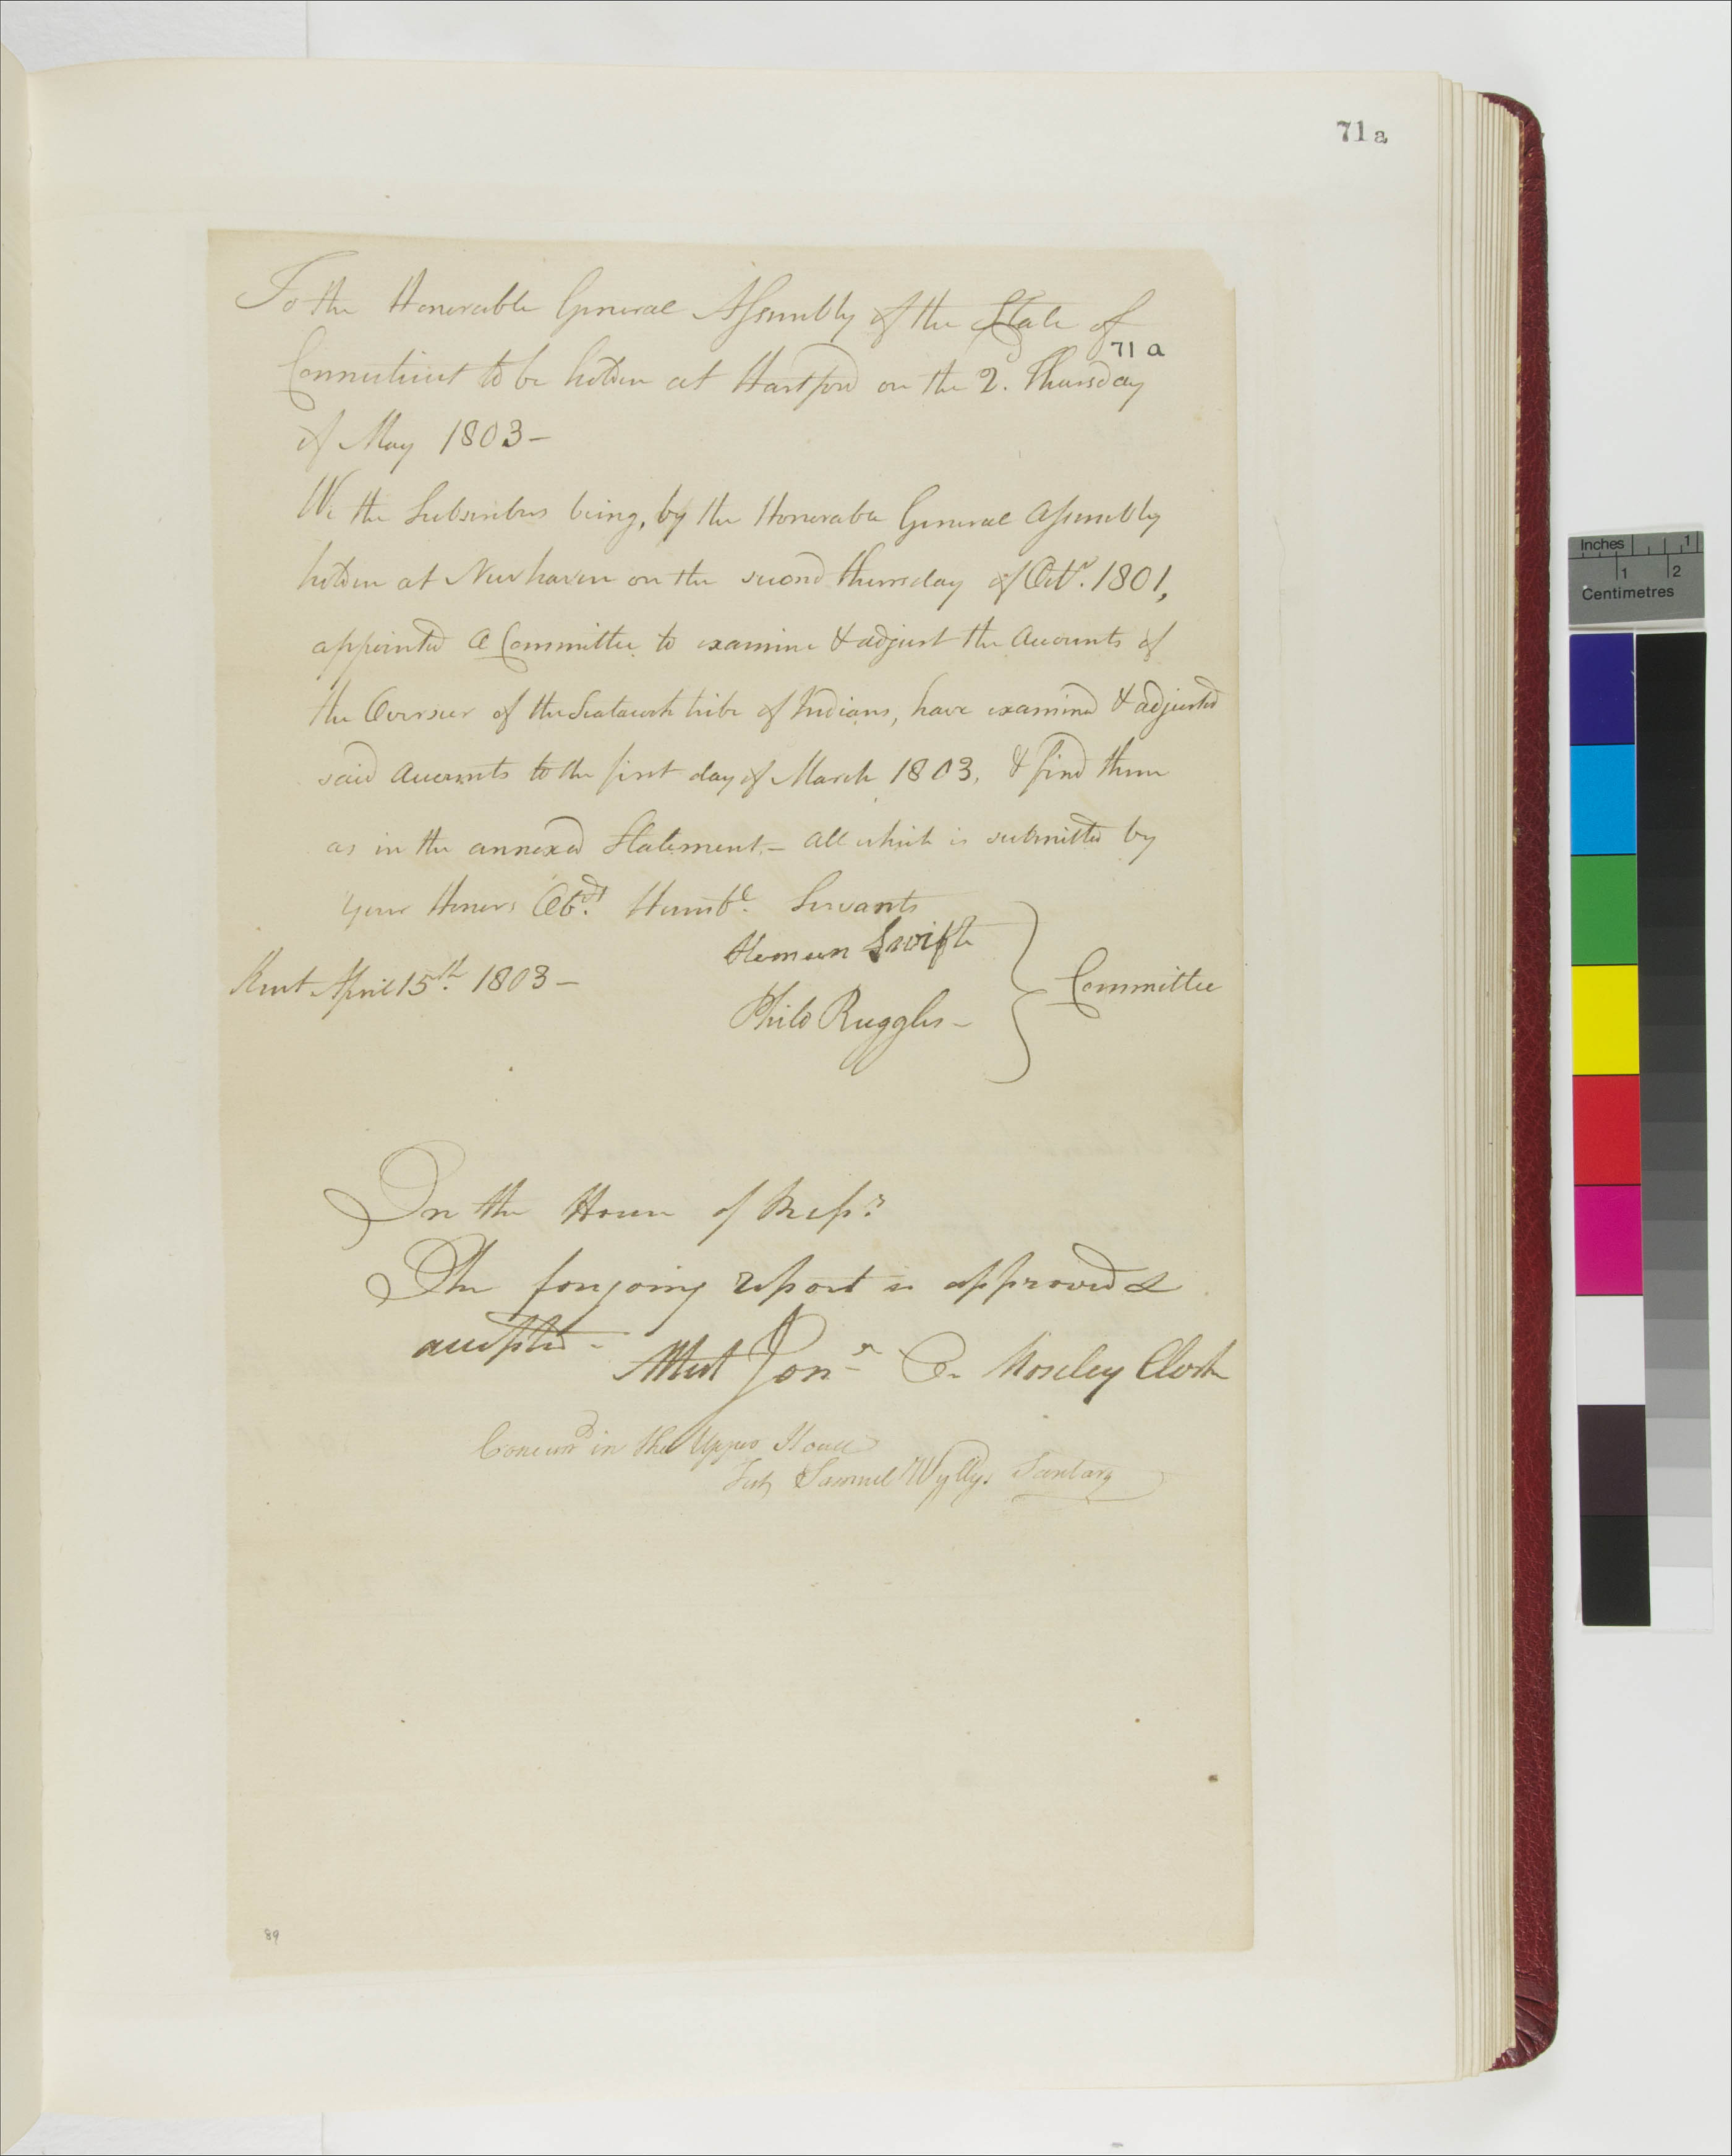 71a
To the Honorable General Assembly of the State of
71 a
Connecticut to be holden at Hartford on the 2d. Thursday
of May 1803-
We the Subscribers being, by the Honorable General Assembly
holden at Newhaven on the second thursday of Octr. 1801,
appointed a Committee to examine & adjust the Accounts of
the Overseer of the Scatacook tribe of Indians, have examined & adjusted
said Accounts to the first day of March 1803, & find them
as in the annexed Statement - All which is submitted by
your Honors Obdt. Humbe. Servants
Heman Swift
Kent April 15th. 1803 -
Committee
Philo Ruggles -
In the House of Reps.
The foregoing report is approved &
accepted -
Attest Jonn O. Moseley Clerk
Concurrd in the Upper House
Test Samuel Wyllys Secretary
89
Inches 1
1 2
Centimetres